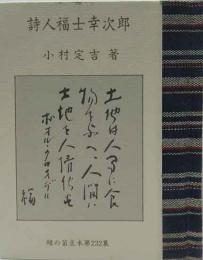 詩人福士幸次郎
小村定吉 著
土地は人間に食
物を与へ、人間は
土地を人情化す
ポオル・クロオデル
福
緑の笛豆本第232集